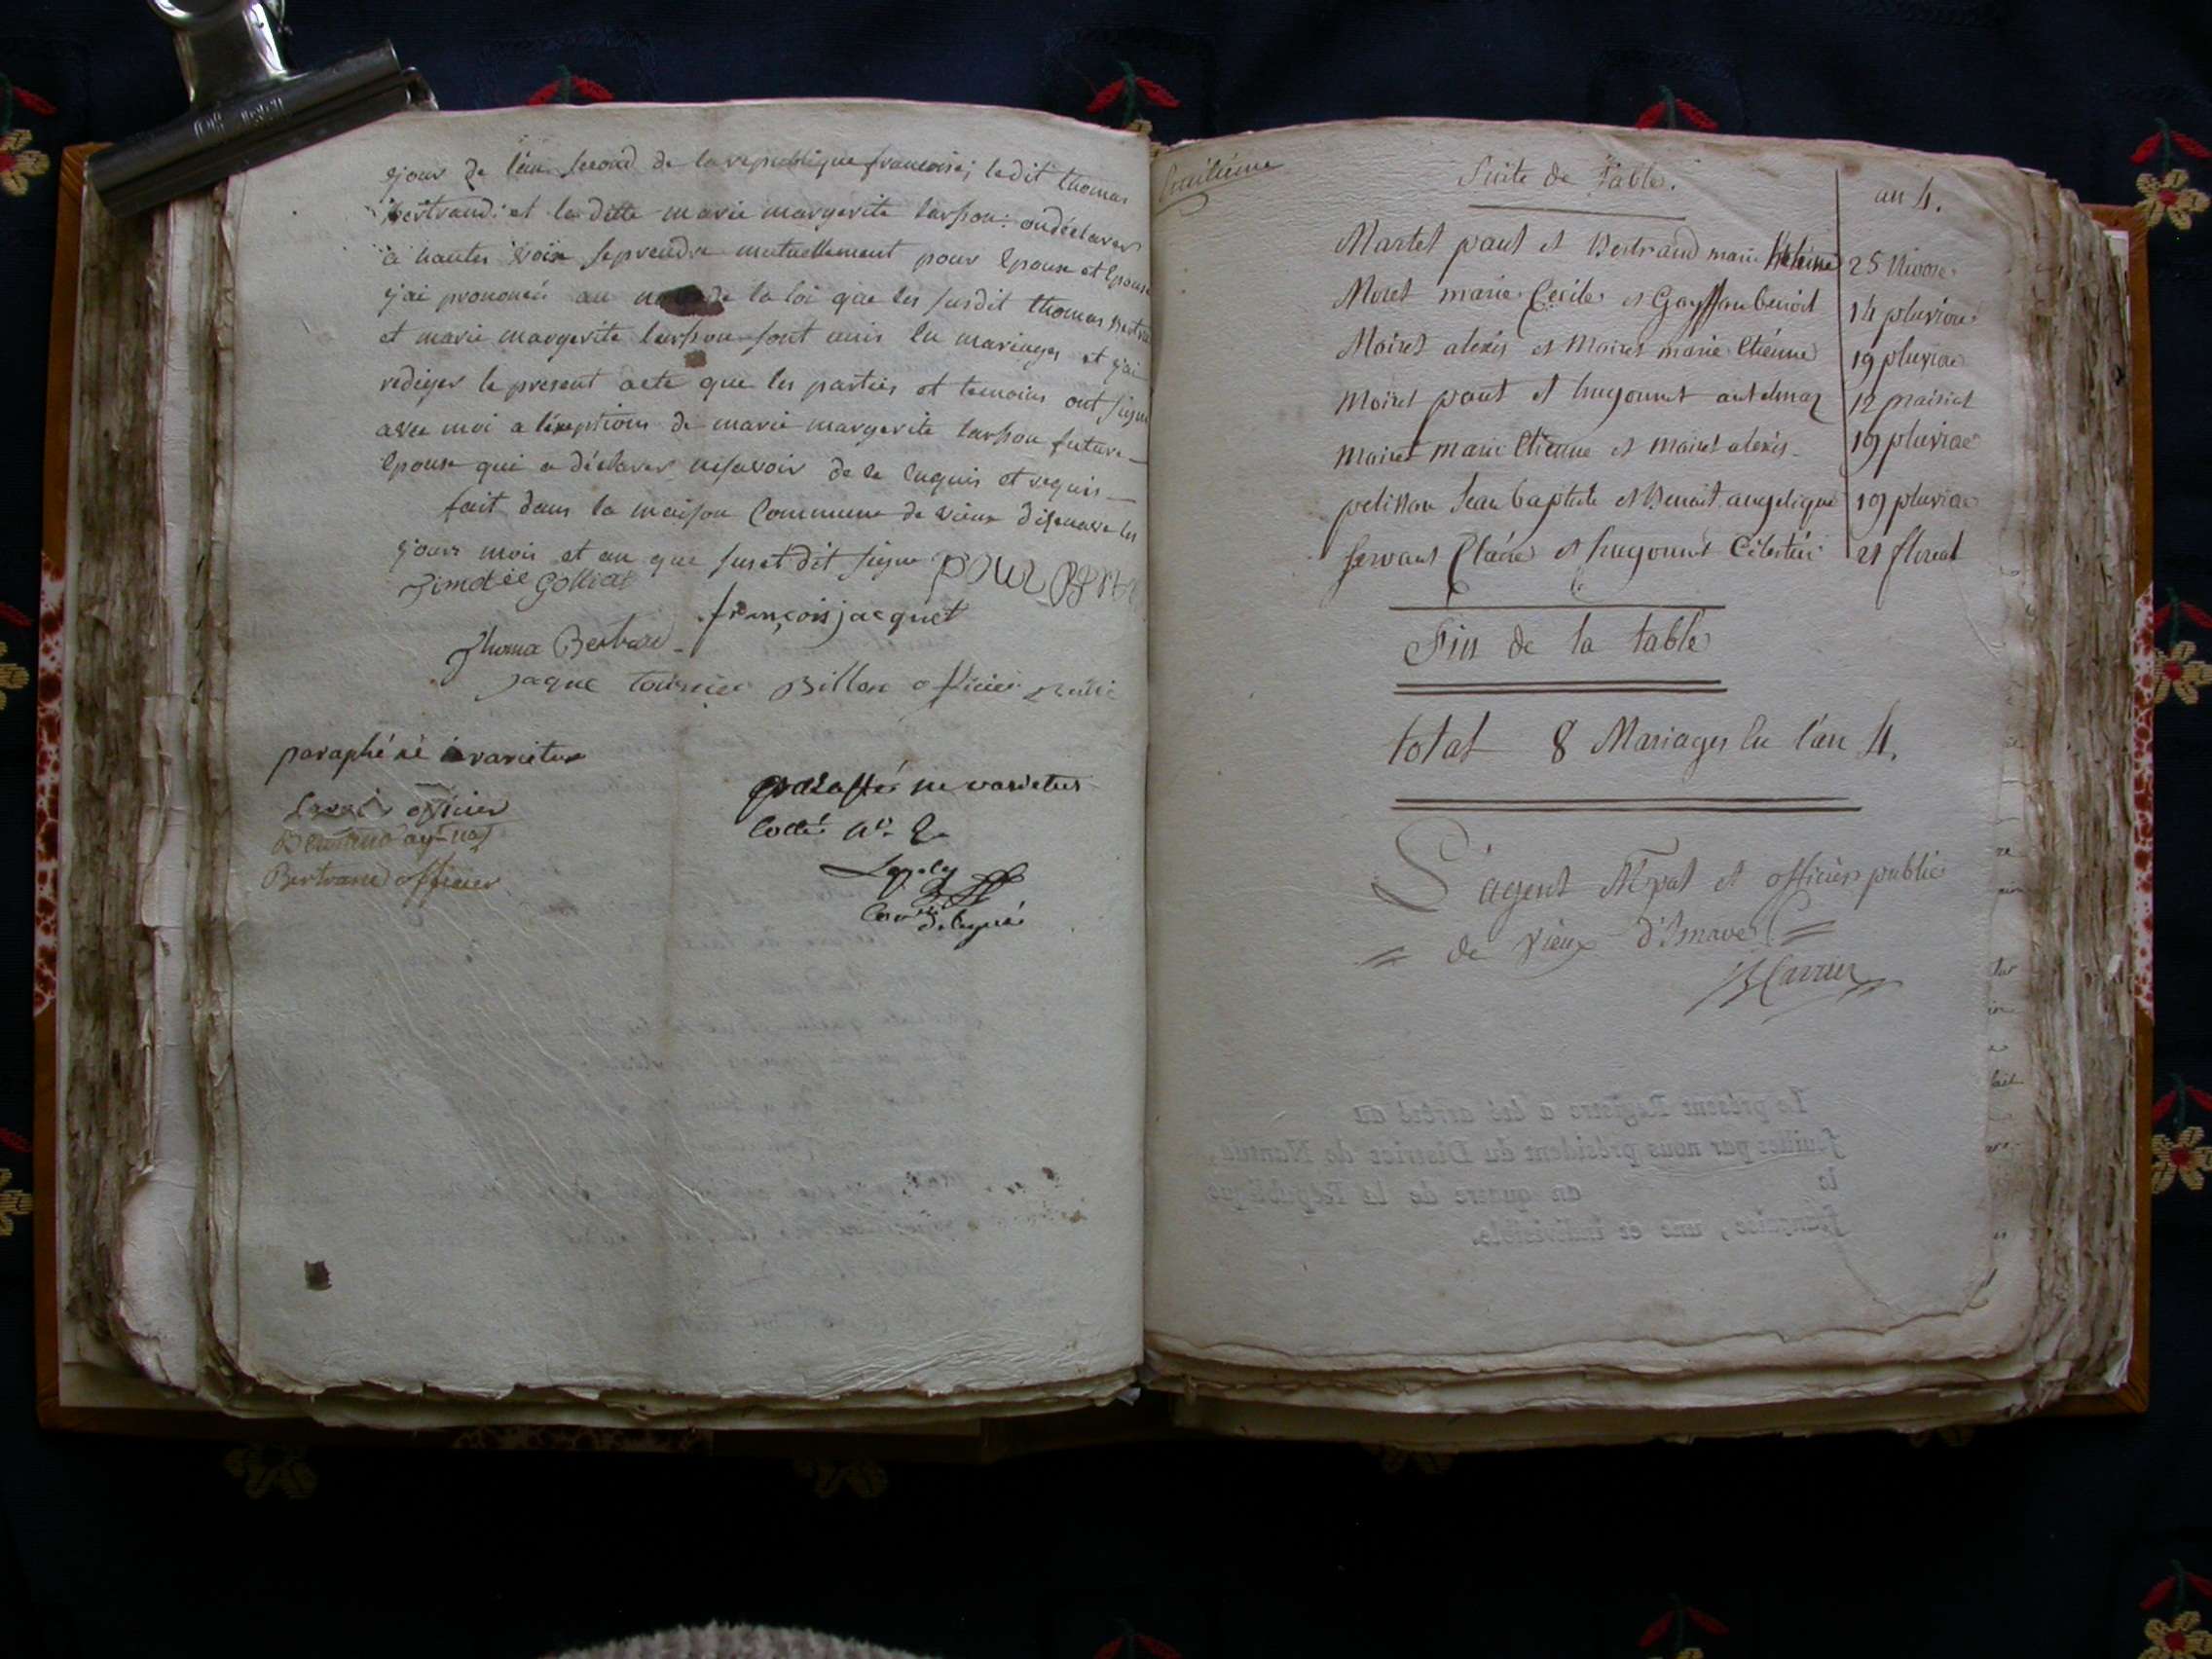 jour de l'an second de la republique francoise; ledit thomas
Bertrand et la ditte marie margerite tarpou: on déclarer
à hautes voix se prendre mutuellement pour Epoux et Epouse
j'ai prononcé au de la loi que les susdit thomas
et marie margerite tarpou sont unis en mariages et j'ai
rediger le present acte que les parties et temoins ont signé
avec moi a l'exeptions de marie margerite tarpou future
Epouse qui a déclarer ne savoir de ce enquis et requis
fait dans la maison Commune de vieux disenave les
jours mois et an que sus et dit signe
Timotée Golliat
françois jacquet
Thoma Bertrad
jaque tournier Billon officier
paraphé né varietur
officier
Bertrand officier
ne varietur
Cotté
délégué
Suite de Table.
an 4.
Martel paul et Bertrand marie 25 Nivose
Moret marie Cecile et Benoit 14 pluviose
Moiret alexis et Moiret marie Etienne 19 pluviose
Moiret paul et hugonnet 12 prairial
Moiret marie Etienne et Moiret alexis 19 pluviose
pelisson Jean baptiste et Benoit angelique 19 pluviose
servant Claire et hugonnet 21 floreal
Fin de la table
total 8 Mariages en l'an 4.
L'agent Mpal et officier public
de Vieux d'Isnave
Carrier
Le présent Registre a été arrêté au
feuillet par nous président du District de Nantua,
le an quatre de la République
française, une et indivisible.